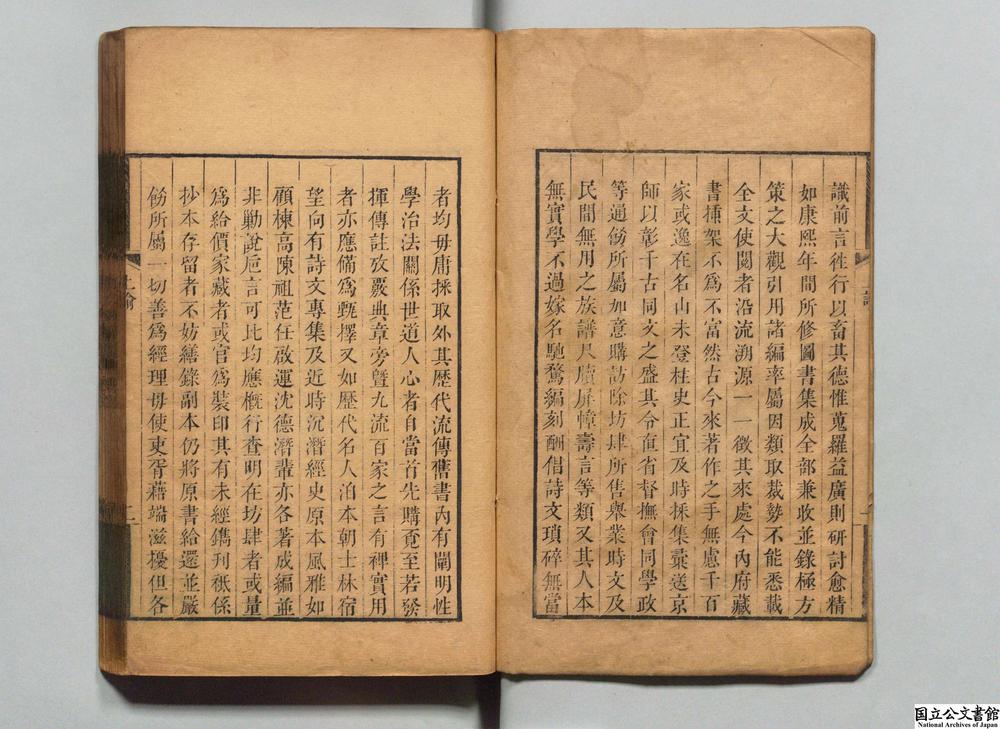 識前言徃行以畜其德惟蒐羅益廣則研討愈精
如康熙年間所修圖書集成全部兼收並錄極方
策之大觀引用諸編率屬因類取裁勢不能悉載
全文使閱者沿流溯源一一徵其來處今內府藏
書揷架不為不富然古今來著作之手無慮千百
家或逸在名山未登柱史正宜及時採集彙送京
師以彰千古同文之盛其令直省督撫會同學政
等通飭所屬加意購訪除坊肆所售舉業時文及
民間無用之族譜尺牘屏幛壽言等類又其人本
無實學不過嫁名馳騖編刻酬倡詩文瑣碎無當
者均毋庸採取外其歷代流傳舊書內有闡明性
學治法關係世道人心者自當首先購覓至若發
揮傳註攷覈典章旁曁九流百家之言有裨實用
者亦應備為甄擇又如歷代名人洎本朝士林宿
望向有詩文專集及近時沉潛經史原本風雅如
顧棟高陳祖范任啟運沈德潛輩亦各著成編並
非勦說巵言可比均應概行查明在坊肆者或量
為給價家藏者或官為裝印其有未經鐫刊祇係
抄本存留者不妨繕錄副本仍將原書給還並嚴
飭所屬一切善為經理毋使吏胥藉端滋擾但各
上諭
二
国立公文書館
National Archives of Japan